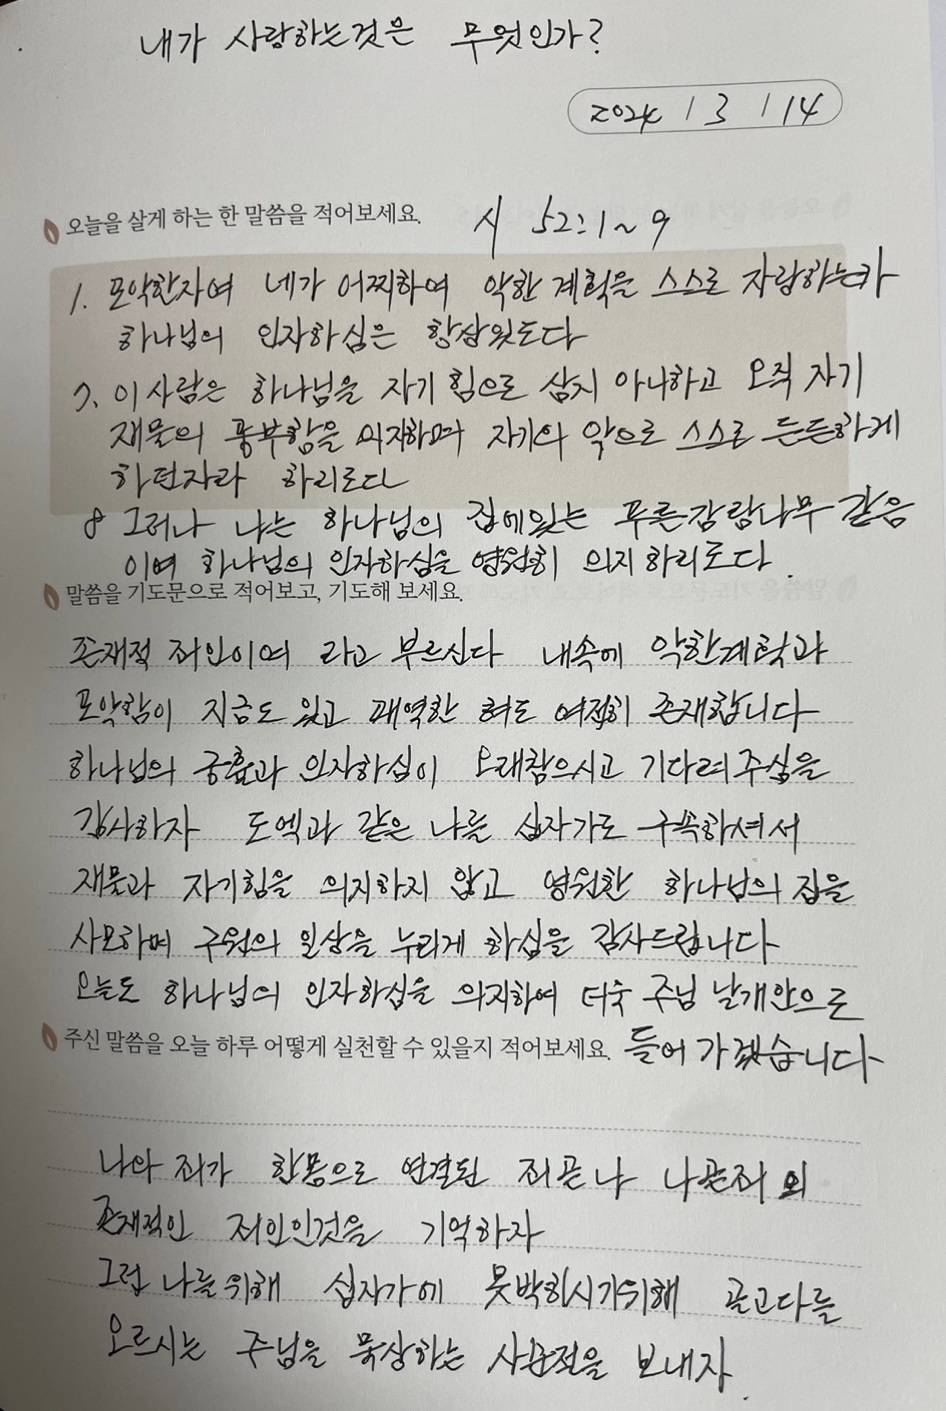 내가 사랑하는것은 무엇인가?
2024 / 3 / 14
오늘을 살게 하는 한 말씀을 적어보세요.
시 52:1~9
1. 포악한자여 네가 어찌하여 악한 계획을 스스로 자랑하는가
하나님의 인자하심은 항상있도다
7. 이 사람은 하나님을 자기 힘으로 삼지 아니하고 오직 자기
재물의 풍부함을 의지하며 자기의 악으로 스스로 든든하게
하던자라 하리로다
8 그러나 나는 하나님의 집에있는 푸른감람나무 같음
이여 하나님의 인자하심을 영원히 의지하리로다.
말씀을 기도문으로 적어보고, 기도해 보세요.
존재적 죄인이여 라고 부르신다 내속에 악한계획과
포악함이 지금도 있고 패역한 혀도 여전히 존재합니다
하나님의 긍휼과 인자하심이 오래참으시고 기다려주심을
감사하자 도엑과 같은 나를 십자가로 구속하셔서
재물과 자기힘을 의지하지 않고 영원한 하나님의 집을
사모하며 구원의 일상을 누리게 하심을 감사드립니다
오늘도 하나님의 인자하심을 의지하여 더욱 주님 날개안으로
들어 가겠습니다
주신 말씀을 오늘 하루 어떻게 실천할 수 있을지 적어보세요.
나와 죄가 한몸으로 연결된 죄곧나 나곧죄 의
존재적인 죄인인것을 기억하자
그런 나를위해 십자가에 못박히시기위해 골고다를
오르시는 주님을 묵상하는 사순절을 보내자.